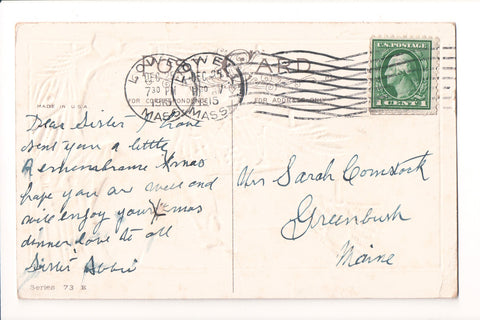 LOWELL LOWELL
DEC DEC 25
7 30 PM
1915 1915
MASS. MASS.
CARD
U.S. POSTAGE
1 CENT 1
MADE IN U.S.A.
FOR CORRESPONDENCE FOR ADDRESS ONLY
Dear Sister I have
sent you a little
Remembrance Xmas
hope you ar well and
will enjoy your Xmas
dinner love to all
Sister Abbie
Mrs Sarah Comstock
Greenbush
Maine
Series 73 E